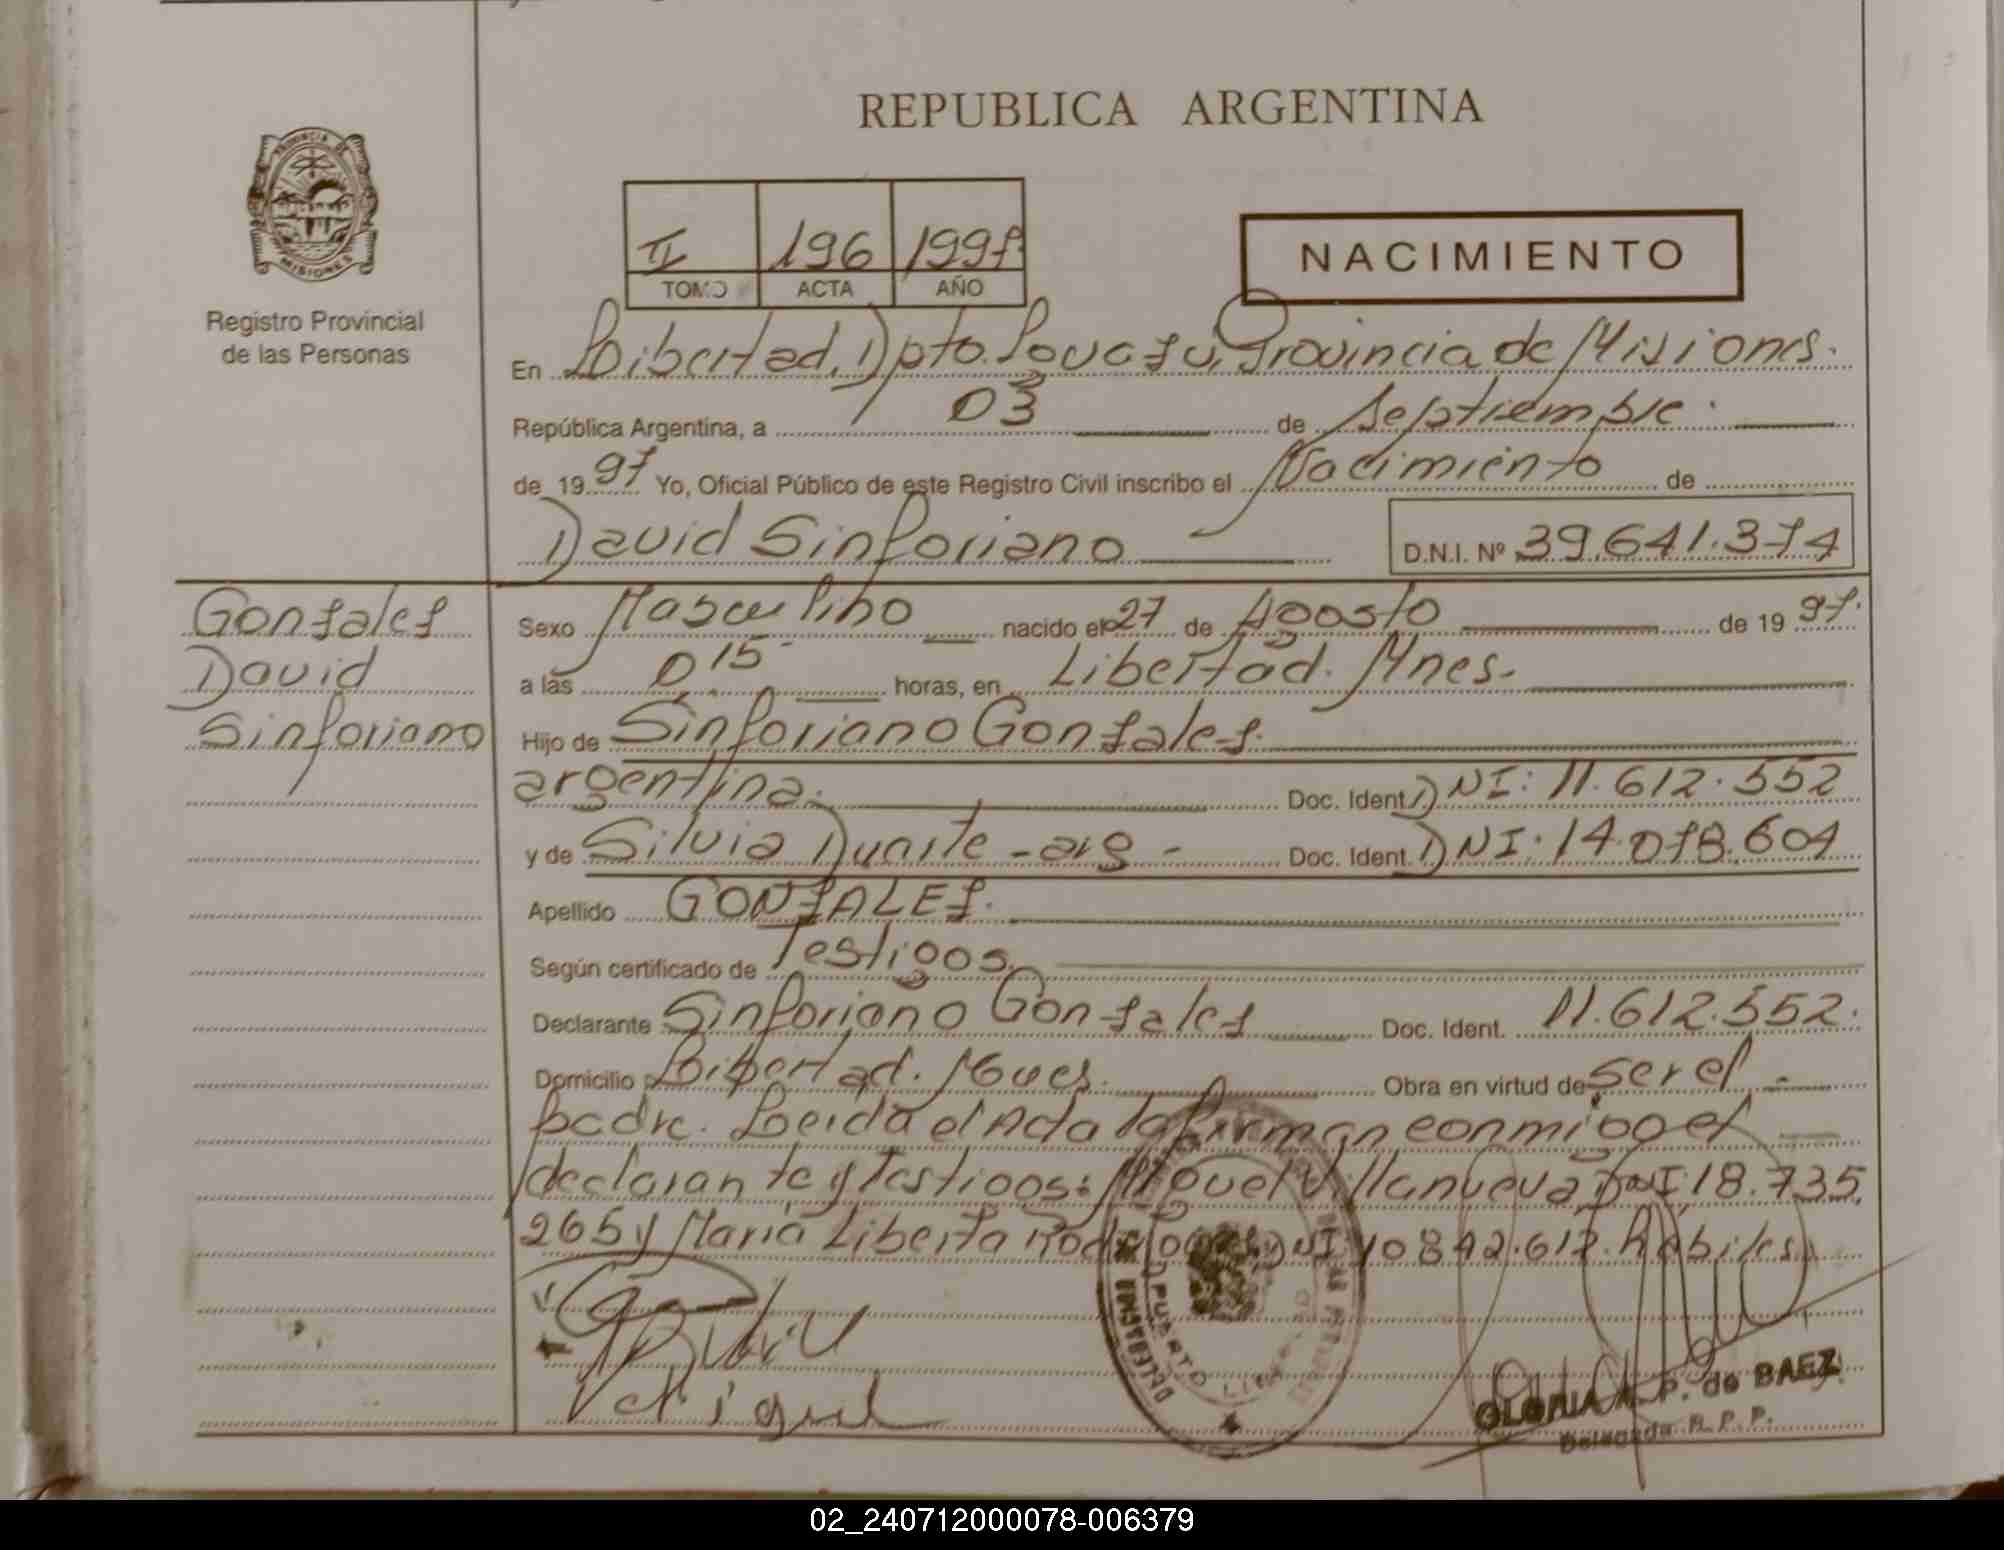 REPUBLICA ARGENTINA
PROVINCIA DE
MISIONES
Registro Provincial
de las Personas
II 196 1997
TOMO ACTA AÑO
NACIMIENTO
En Libertad, Dpto. Iguazú, Provincia de Misiones.
República Argentina, a 03 de Septiembre.
de 1997 Yo, Oficial Público de este Registro Civil inscribo el Nacimiento de
David Sinforiano D.N.I. Nº 39.641.374
Gonzalez
David
Sinforiano
Sexo Masculino nacido el 27 de Agosto de 1997.
a las 0 15 horas, en Libertad. Mnes.
Hijo de Sinforiano Gonzalez.
argentina. Doc. Ident. DNI: 11.612.552
y de Silvia Duarte - arg - Doc. Ident. DNI: 14.078.604
Apellido GONZALEZ.
Según certificado de Testigos
Declarante Sinforiano Gonzalez Doc. Ident. 11.612.552.
Domicilio Libertad. Obra en virtud de ser el
padre. Leida el Acta la firman conmigo el
declarante y Testigos: Miguel Villanueva DNI 18.735.
265 y Maria Liberta DNI 10842.617. hábiles.
Miguel
PUERTO
GLORIA P. de BAEZ
Delegada R. P. P.
02_240712000078-006379